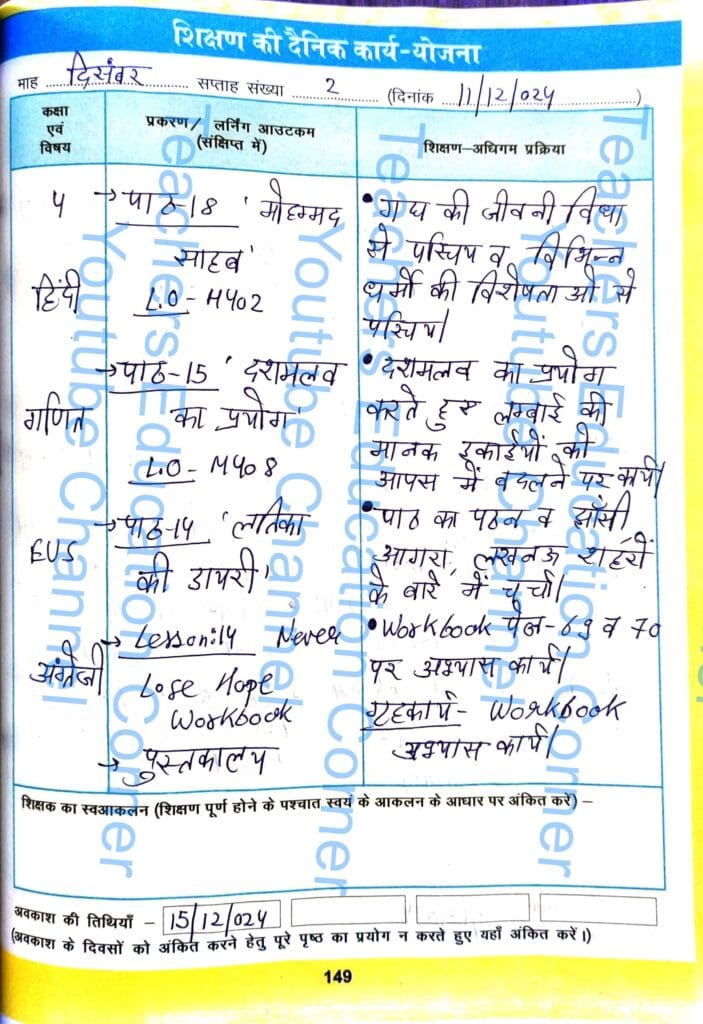 शिक्षण की दैनिक कार्य-योजना
माह दिसंबर सप्ताह संख्या 2 (दिनांक 11/12/024)
कक्षा
एवं
विषय
प्रकरण/ लर्निंग आउटकम
(संक्षिप्त में)
शिक्षण-अधिगम प्रक्रिया
5
हिंदी
→ पाठ-18 'मोहम्मद
साहब'
L.O - H502
• गद्य की जीवनी विधा
से परिचय व विभिन्न
धर्मों की विशेषताओं से
परिचय।
गणित
→ पाठ-15 'दशमलव
का प्रयोग'
L.O - M508
• दशमलव का प्रयोग
करते हुए लम्बाई की
मानक इकाईयों को
आपस में बदलने पर कार्य।
EVS
→ पाठ-14 'लतिका
की डायरी'
• पाठ का पठन व झाँसी,
आगरा, लखनऊ शहरों
के बारे में चर्चा।
अंग्रेजी
→ Lesson:14 Never
Lose Hope
Workbook
• Workbook पेज-69 व 70
पर अभ्यास कार्य।
गृहकार्य - Workbook
अभ्यास कार्य।
→ पुस्तकालय
शिक्षक का स्वआकलन (शिक्षण पूर्ण होने के पश्चात स्वयं के आकलन के आधार पर अंकित करें) –
अवकाश की तिथियाँ – 15/12/024
(अवकाश के दिवसों को अंकित करने हेतु पूरे पृष्ठ का प्रयोग न करते हुए यहाँ अंकित करें।)
149
Teachers Education Corner
Youtube Channel
Teachers Education Corner
Youtube Channel
Teachers Education Corner
Youtube Channel